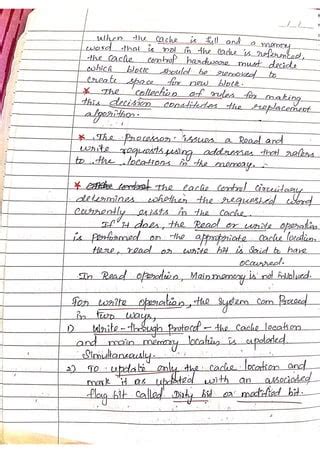 when the cache is full and a memory
word that is not in the cache is referenced,
the cache control hardware must decide
which block should be removed to
create space for new block.
* The collection of rules for making
this decision constitutes the replacement
algorithm.
* The Processor issues a Read and
write requests using addresses that refers
to the locations in the memory.
* The cache control circuitary
determines whether the requested word
currently exists in the cache.
If it does, the Read or write operation
is performed on the appropriate cache location.
Here, read or write hit is said to have
ocurred.
In Read operation, Main memory is not involved.
For write operation, the system can proceed
in two ways,
1) Write-through Protocol - the cache location
and main memory location is updated
Simultaneously.
2) To update only the cache location and
mark it as updated with an associated
flag bit called Dirty bit or modified bit.